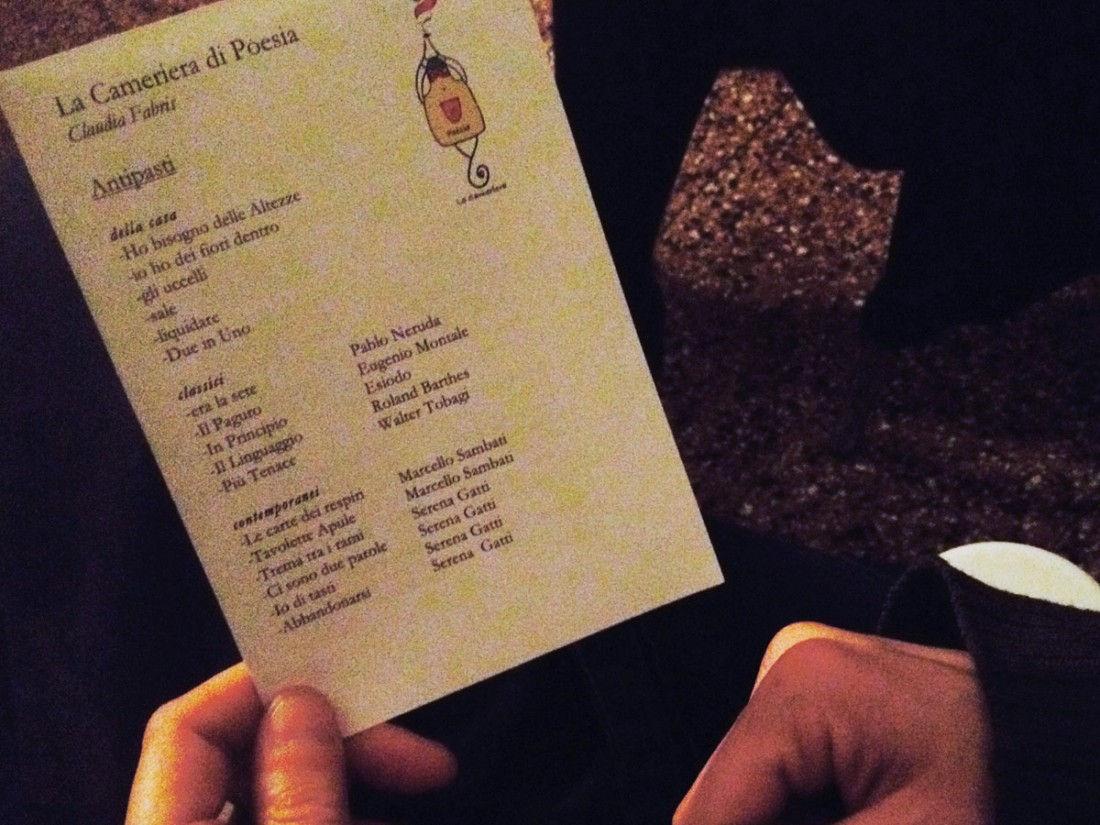 La Cameriera di Poesia
Claudia Fabris
Poesia
La Cameriera
Antipasti
della casa
-Ho bisogno delle Altezze
-io ho dei fiori dentro
-gli uccelli
-sale
-liquidare
-Due in Uno
classici
-era la sete Pablo Neruda
-Il Paguro Eugenio Montale
-In Principio Esiodo
-Il Linguaggio Roland Barthes
-Più Tenace Walter Tobagi
contemporanei
-Le carte dei respiri Marcello Sambati
-Tavolette Apule Marcello Sambati
-Trema tra i rami Serena Gatti
-Ci sono due parole Serena Gatti
-Io di tasti Serena Gatti
-Abbandonarsi Serena Gatti